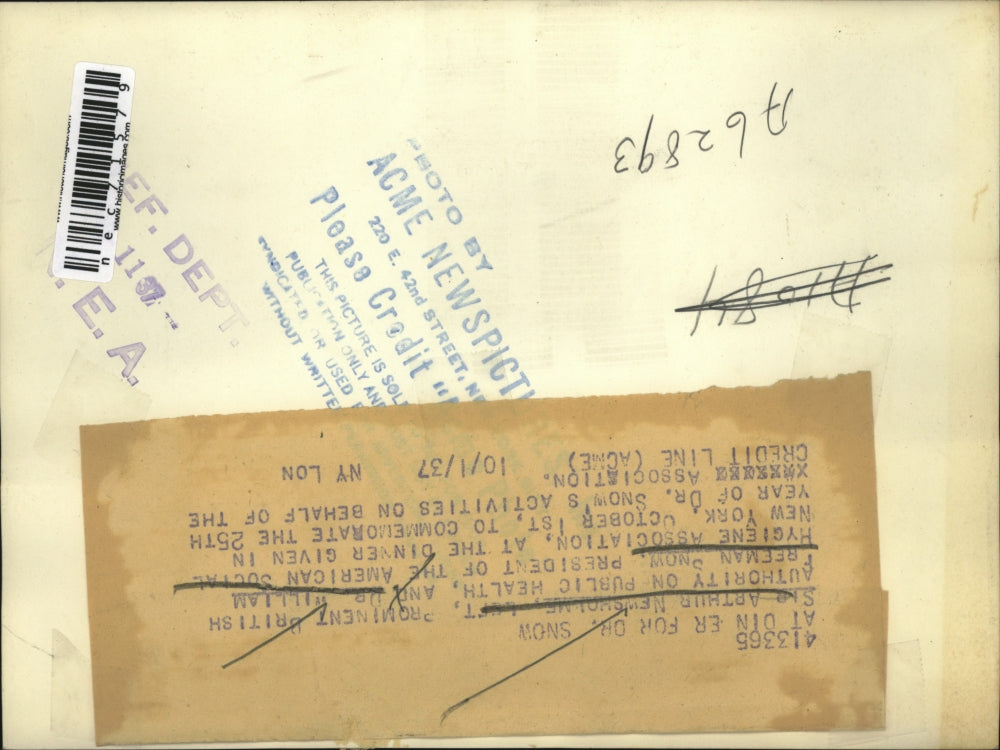 A62893
PHOTO BY
ACME NEWSPICT
220 E. 42nd STREET, NE
Please Credit "A
THIS PICTURE IS SOL
PUBLICATION ONLY AND
SYNDICATED OR USED F
WITHOUT WRITTE
EF. DEPT.
E. A.
www.historicimages.com
nec71579
413365
AT DIN ER FOR DR. SNOW
SIR ARTHUR NEWSHOLME, LEFT, PROMINENT BRITISH
AUTHORITY ON PUBLIC HEALTH, AND DR. WILLIAM
FREEMAN SNOW PRESIDENT OF THE AMERICAN SOCIAL
HYGIENE ASSOCIATION, AT THE DINNER GIVEN IN
NEW YORK, OCTOBER 1ST, TO COMMEMORATE THE 25TH
YEAR OF DR. SNOW'S ACTIVITIES ON BEHALF OF THE
ASSOCIATION.
CREDIT LINE (ACME) 10/1/37 NY LON